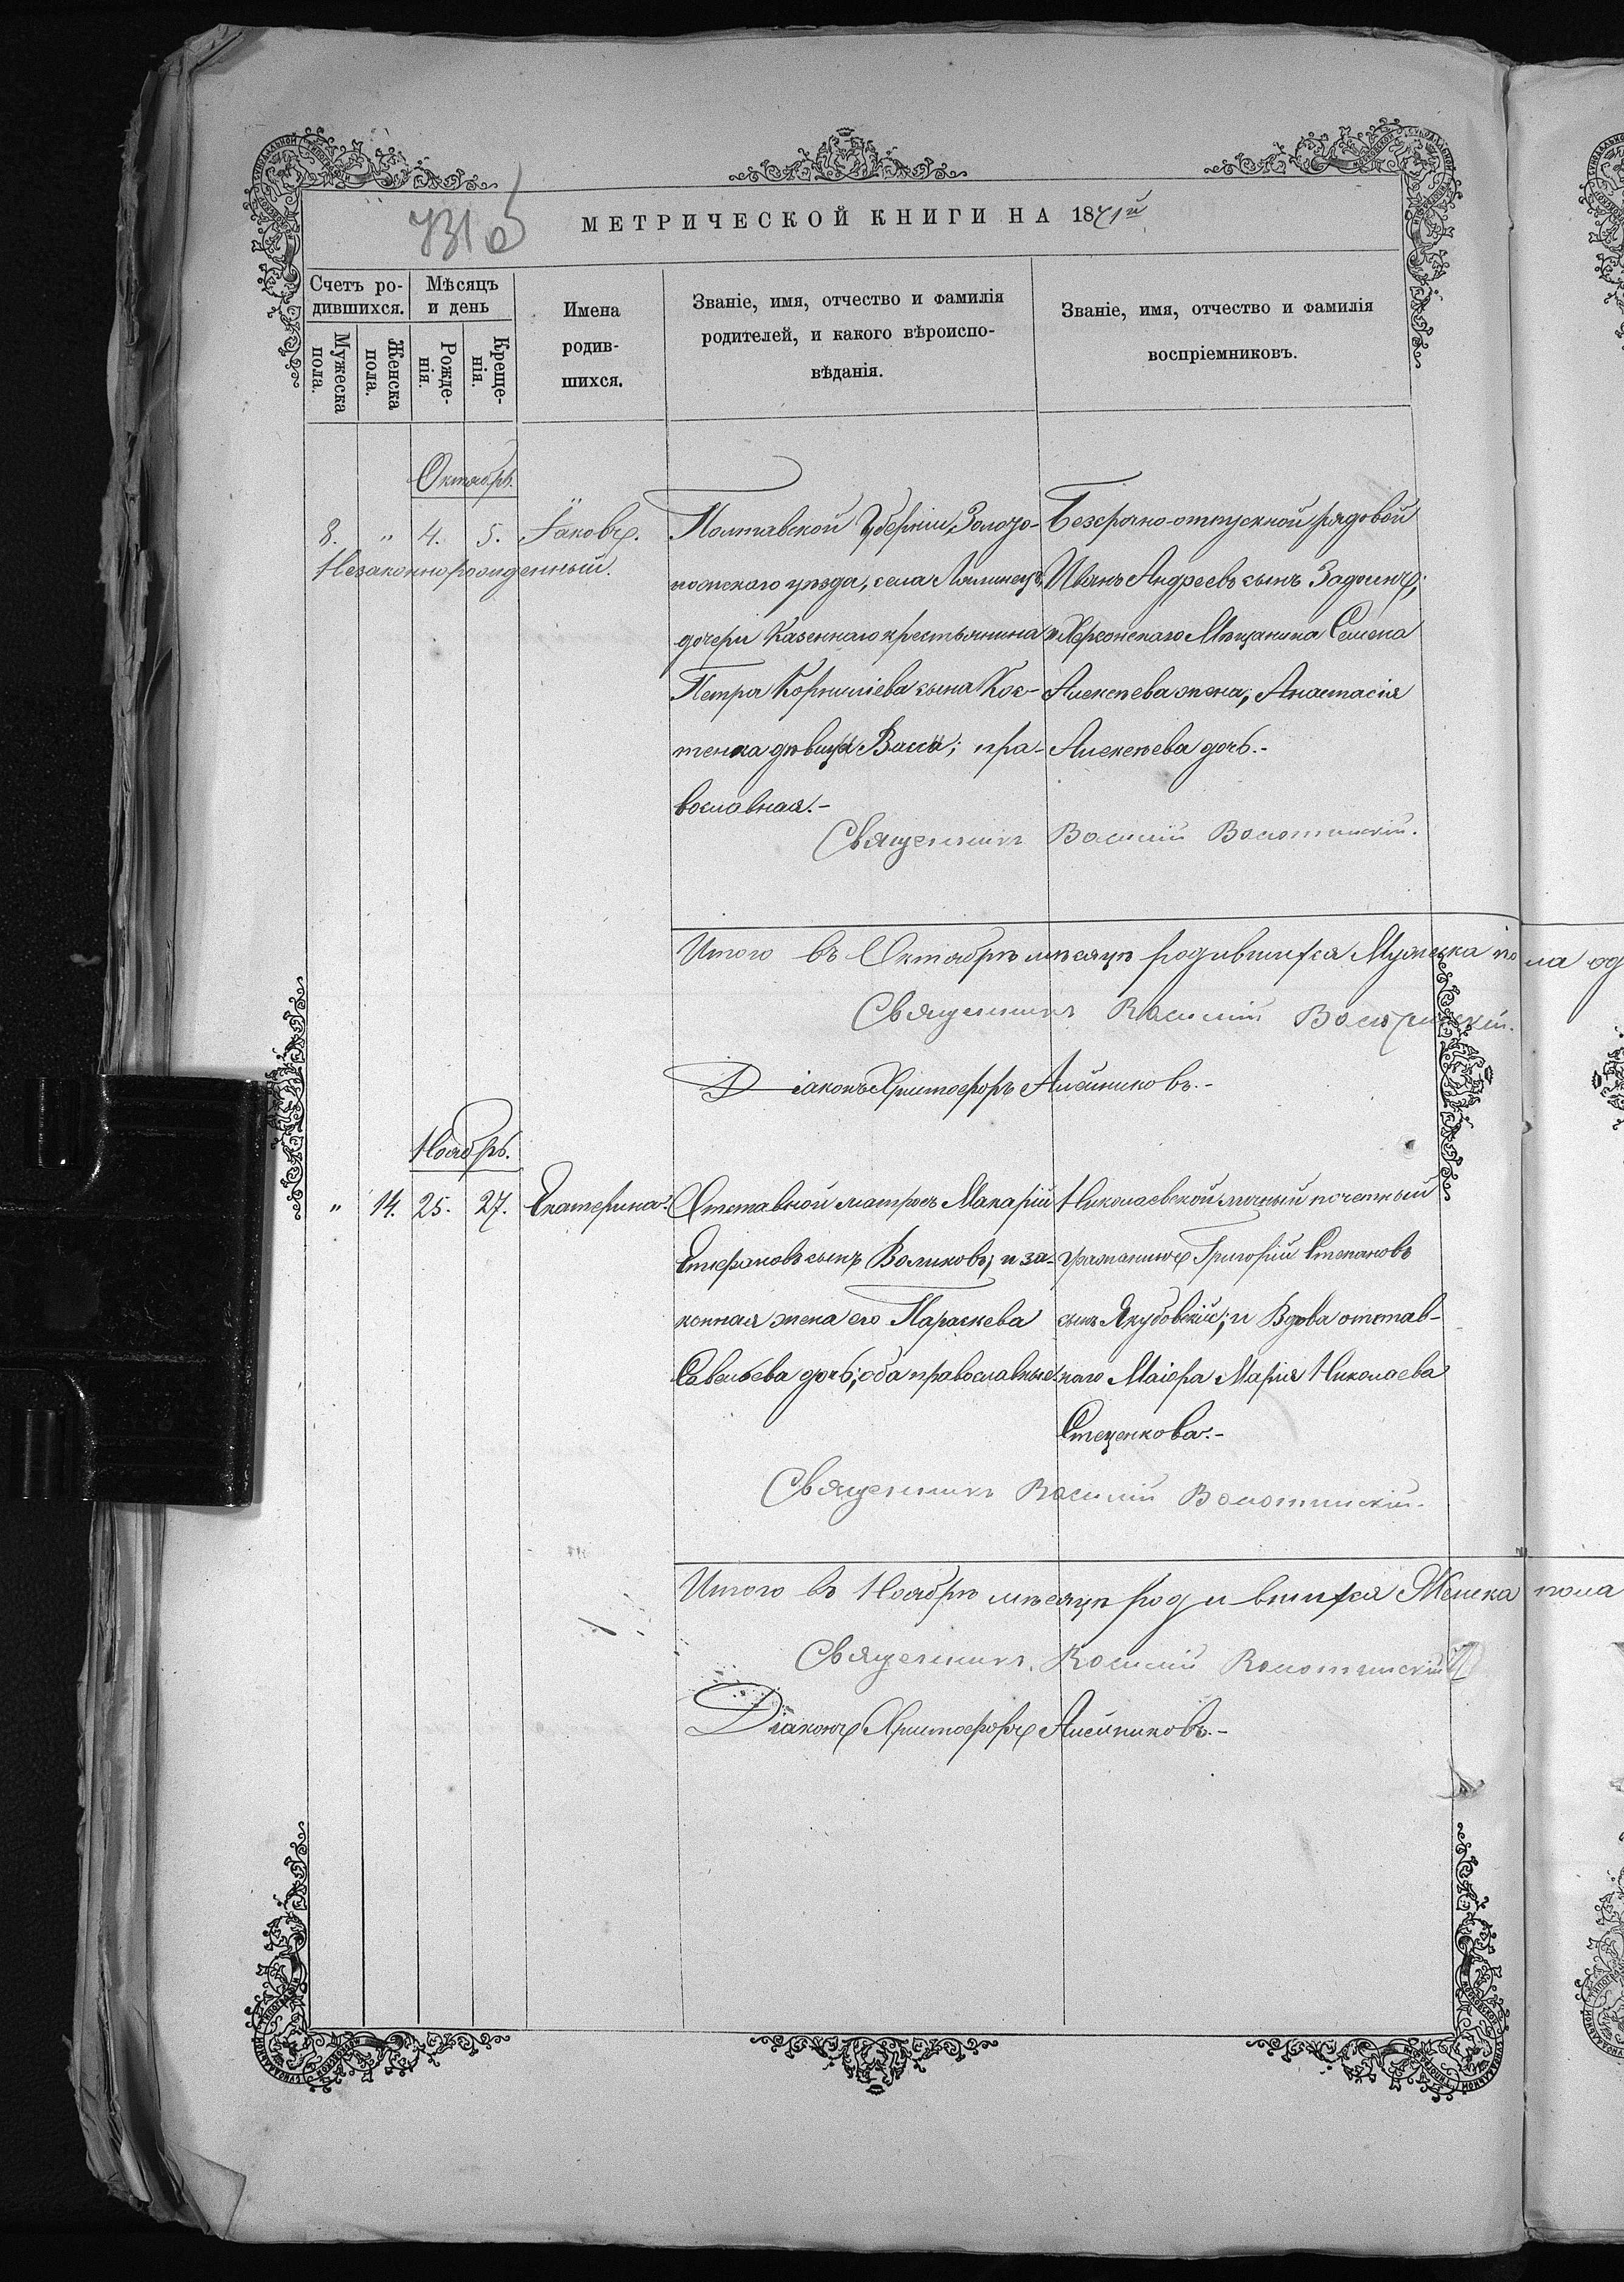 731 об
МЕТРИЧЕСКОЙ КНИГИ НА 1871й
Счетъ ро-
дившихся.
Мѣсяцъ
и день
Мужеска
пола.
Женска
пола.
Рожде-
нія.
Креще-
нія.
Имена
родив-
шихся.
Званіе, имя, отчество и фамилія
родителей, и какого вѣроиспо-
вѣданія.
Званіе, имя, отчество и фамилія
воспріемниковъ.
Октябрь.
8. " 4. 5. Іаковъ.
Незаконнорожденный.
Полтавской Губерніи, Золото-
ношскаго уѣзда, села
дочери Казеннаго крестьянина
Петра Корниліева сына Кос-
тенка дѣвица Васса; пра-
вославная.-
Безсрочно-отпускной рядовой
Иванъ Андреевъ сынъ
и Херсонскаго Мѣщанина Семена
Алексѣева жена, Анастасія
Алексѣева дочь.-
Священникъ Василій Волотинскій.
Итого въ Октябрѣ мѣсяцѣ родившихся Мужеска пола од
Священникъ Василій Волотинскій.
Діаконъ Христофоръ Алейниковъ.-
Ноябрь.
" 14. 25. 27. Екатерина.
Отставной матросъ Макарій
Стефановъ сынъ Воликовъ; и за-
конная жена его Параскева
Савельева дочь; оба православные.
Николаевской личный почетный
гражданинъ Григорій Степановъ
сынъ Якубовскій; и Вдова отстав-
наго Маіора Марія Николаева
Стеценкова.-
Священникъ Василій Волотинскій.
Итого въ Ноябрѣ мѣсяцѣ родившихся Женска пола
Священникъ Василій Волотинскій
Діаконъ Христофоръ Алейниковъ.-